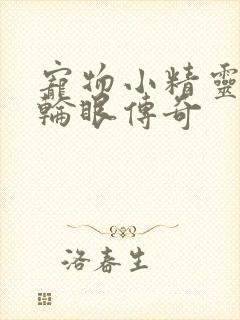 寵物小精靈
輪眼傳奇
洛春生